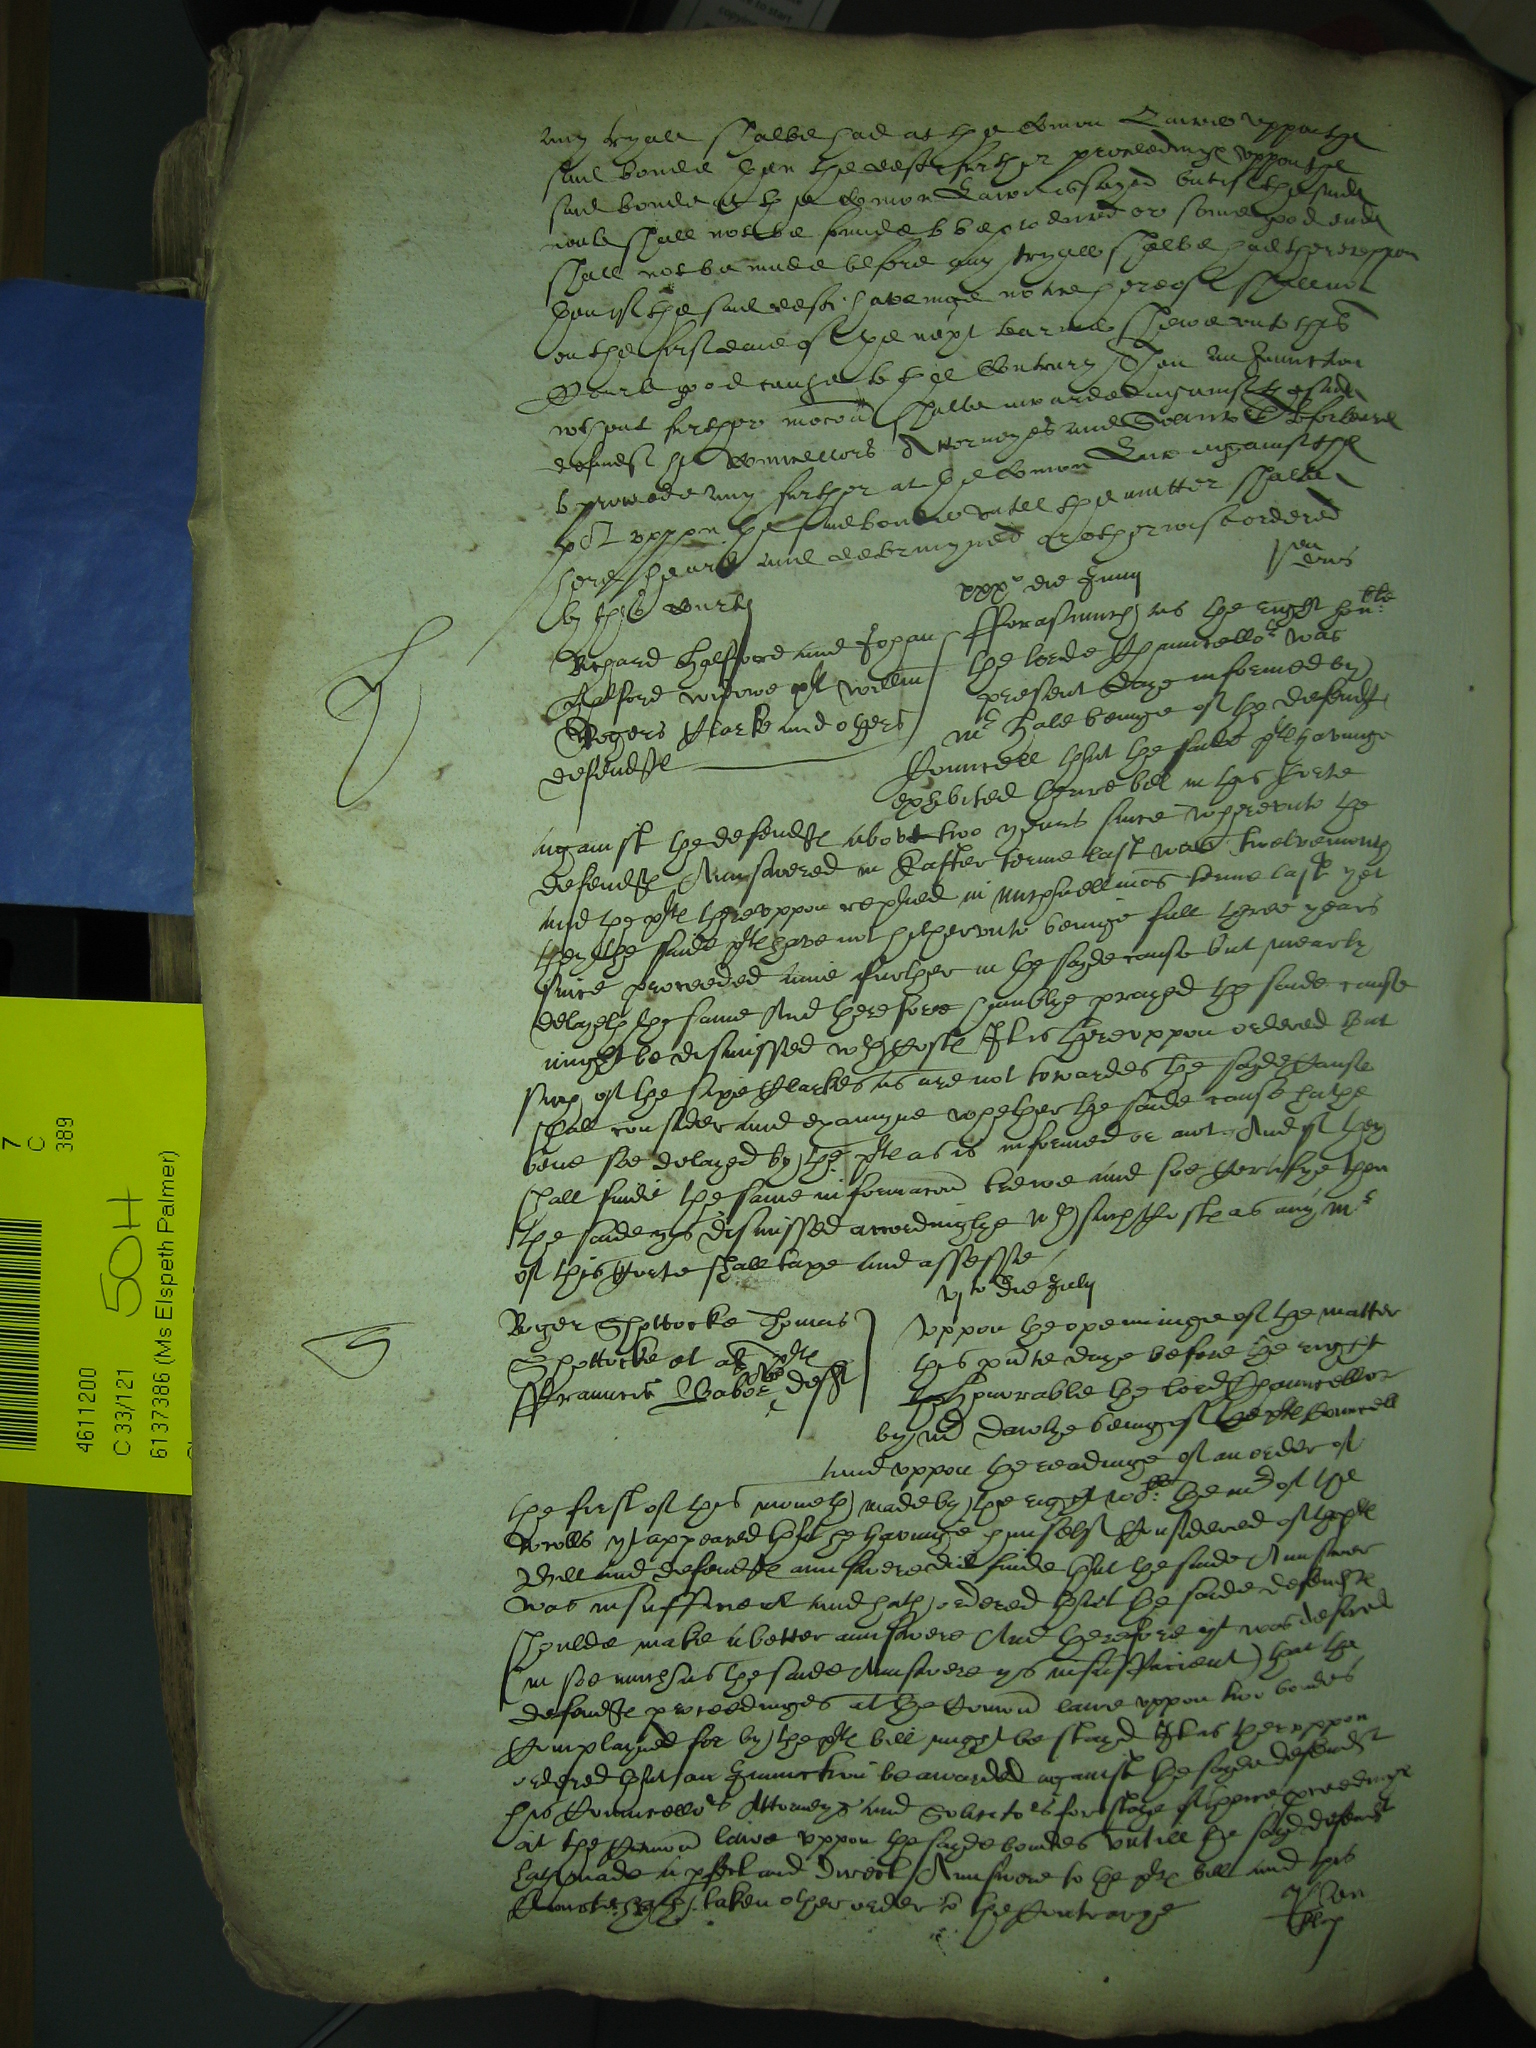 any tryall shalbe had at the Comon Lawe uppon the
said bonde then the deft further proceedinge uppon the
said bonde at the Comon Lawe is stayed but if the saide
shall not be founde to be or some good ende
shall not be made before any tryall shalbe had thereuppon
Yeat if the said deft havinge notice hereof shall not
on the first daie of the next tearme shewe unto this
Courte good cause to the Contrary Then an Iniunction
wthout further mocon shalbe awarded against the saide
defendt his Councellors Attorneyes and Solicitors
to proceede any further at the Comon Lawe against the
plt uppon the said bonde untill the matter shalbe
here heard and determyned or otherwise ordered
by this Courte
xxxo die Junij
Richard Halfford and Johan
Halford widowe plt Willm
Rogers Clarke and others
defendts
Forasmuch as the right hon:ble
the lorde Chauncellor was
present daye informed by
Mr Hale beinge of the defendts
Councell that the saide plts havinge
exhibited theire bill in this Corte
against the defendts above two years since whereunto the
defendts Aunswered in Easter terme last was twelvemonth
and the plts thereuppon replied in Michaellmas terme last yet
they the saide plts have not hitherunto beinge full three years
since proceeded anie further in the sayde cause but mearly
delayeth the same And therefore humblye prayed the saide cause
might be dismissed wth Costs It is thereuppon ordered that
such of the sixe Clarkes as are not towardes the sayde Cause
shall consider and examyne whether the saide cause hathe
bene soe delayed by the plts as is informed or not And if they
shall finde the same informacon trewe and soe Certifye then
the saide ys dismissed accordinglye wth such Costs as any Mr
of this Corte shall taxe and assesse
vjto die Julij
Roger Shottocke Thomas
Shottocke et al plts
Frauncis Babor defts
Uppon the openinge of the matter
this pnte daye before the right
honorable the lord Chauncellor
by Mr beinge of the plts Councell
and uppon the readinge of an order of
the first of this moneth made by the right wor:ll the Mr of the
Rowlls yt appeared that he havinge himself Considered of the plts
Bill and defendts aunswere did finde that the saide Aunswer
was insufficient and hath ordered that the saide defendts
shoulde make a better aunswere And therefore yt was desired
(in soe much as the saide Aunswere ys insufficient) that the
defendts proceedinges at the Comon lawe uppon two bondes
Complayned for by the plts bill might be stayed It is thereuppon
ordered that an Iniunction be awarded against the sayde defendt
his Councellors Attorneys and Solicitors for staye of theire proceedings
at the Comon lawe uppon the sayde bondes untill the sayd defendt
hath made a pfect and direct Aunswere to the plts bill and this
Courte hath taken other order to the Contrarye
7
C
389
50H
4611200
C 33/121
6137386 (Ms Elspeth Palmer)